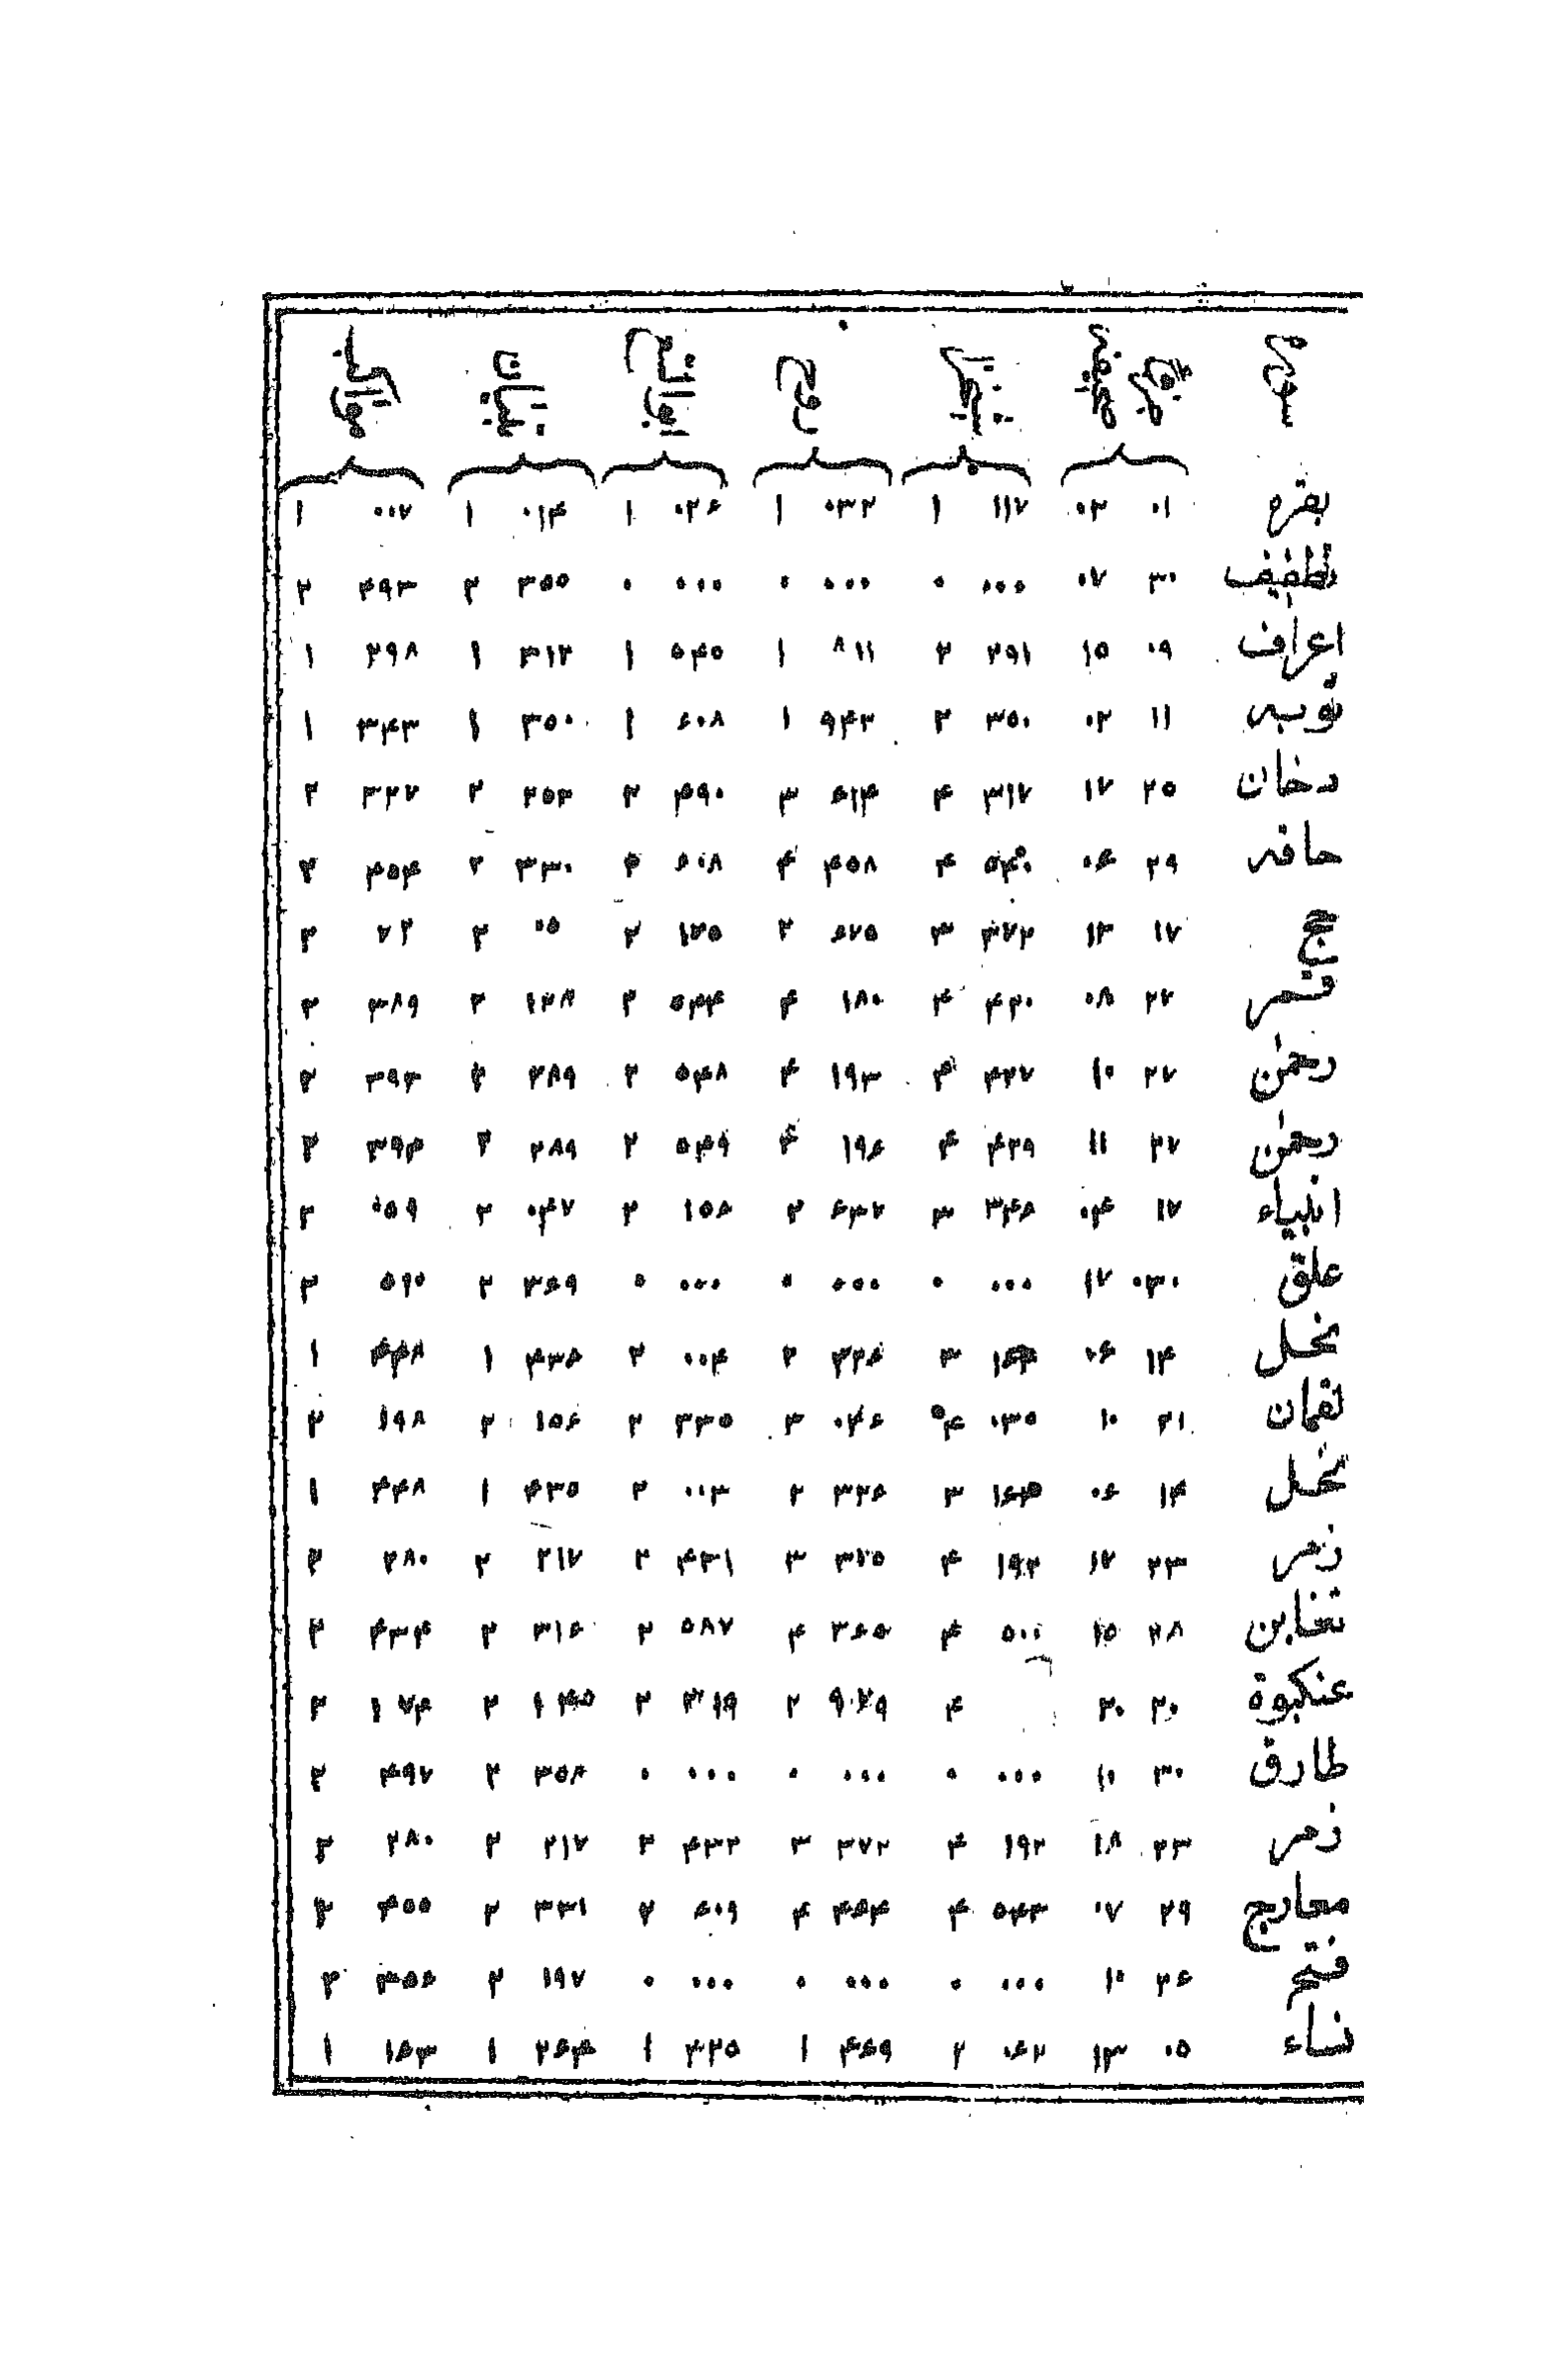 بقره ۰۱ ۰۲ ۱۱۷ ۱ ۰۳۲ ۱ ۰۲۶ ۱ ۰۱۴ ۱ ۰۰۷ ۱
تطفیف ۳۰ ۰۷ ۰۰۰ ۰ ۰۰۰ ۰ ۰۰۰ ۰ ۳۵۵ ۲ ۴۹۳ ۲
اعراف ۰۹ ۱۵ ۲۹۱ ۲ ۸۱۱ ۱ ۵۴۵ ۱ ۳۱۲ ۱ ۲۹۸ ۱
توبه ۱۱ ۰۲ ۳۵۰ ۲ ۹۴۲ ۱ ۶۰۸ ۱ ۳۵۰ ۱ ۳۴۳ ۱
دخان ۲۵ ۱۷ ۳۱۷ ۴ ۶۱۴ ۳ ۴۹۰ ۲ ۲۵۳ ۲ ۳۲۷ ۲
حاقه ۲۹ ۰۶ ۵۴۰ ۴ ۴۵۸ ۴ ۶۰۸ ۲ ۳۳۰ ۲ ۴۵۴ ۲
حج ۱۷ ۱۳ ۳۷۲ ۳ ۶۷۵ ۲ ۱۷۵ ۲ ۰۵ ۲ ۷۲ ۲
قمر ۲۷ ۰۸ ۴۲۰ ۴ ۱۸۰ ۴ ۵۴۴ ۲ ۲ ۳۸۹ ۲
رحمن ۲۷ ۱۰ ۴۲۷ ۴ ۱۹۳ ۴ ۵۴۸ ۲ ۲۸۹ ۲ ۳۹۳ ۲
رحمن ۲۷ ۱۱ ۴۲۹ ۴ ۱۹۶ ۴ ۵۴۹ ۲ ۲۸۹ ۲ ۳۹۴ ۲
انبیاء ۱۷ ۰۴ ۳۴۶ ۳ ۶۳۷ ۲ ۱۵۶ ۲ ۰۴۷ ۲ ۰۵۹ ۲
علق ۰۳۰ ۱۷ ۰۰۰ ۰ ۰۰۰ ۰ ۰۰۰ ۰ ۳۶۹ ۲ ۵۱۰ ۲
نحل ۱۴ ۰۶ ۳ ۳۲۶ ۲ ۰۰۴ ۲ ۴۳۶ ۱ ۴۴۸ ۱
لقمان ۲۱ ۱۰ ۰۳۵ ۴ ۰۴۶ ۳ ۳۳۵ ۲ ۱۵۶ ۲ ۱۹۸ ۲
نحل ۱۴ ۰۶ ۳ ۳۲۶ ۲ ۰۰۳ ۲ ۴۳۵ ۱ ۴۴۸ ۱
زمر ۲۳ ۱۷ ۱۹۲ ۴ ۳۷۵ ۳ ۴۳۱ ۲ ۲۱۷ ۲ ۲۸۰ ۲
تغابن ۲۸ ۱۵ ۵۰۰ ۴ ۳۶۵ ۴ ۵۸۷ ۲ ۳۱۶ ۲ ۴۳۴ ۲
عنکبوة ۲۰ ۲۰ ۴ ۹۰۷۹ ۲ ۳۱۹ ۲ ۱۴۵ ۲ ۱۷۴ ۲
طارق ۳۰ ۱۰ ۰۰۰ ۰ ۰۰۰ ۰ ۰۰۰ ۰ ۳۵۸ ۲ ۴۹۷ ۲
زمر ۲۳ ۱۸ ۱۹۲ ۴ ۳۷۲ ۳ ۴۳۲ ۲ ۲۱۷ ۲ ۲۸۰ ۲
معارج ۲۹ ۰۷ ۵۴۳ ۴ ۴۶۴ ۴ ۶۰۹ ۲ ۳۳۱ ۲ ۴۵۵ ۲
فتح ۲۶ ۱۰ ۰۰۰ ۰ ۰۰۰ ۰ ۰۰۰ ۰ ۱۹۷ ۲ ۳۵۶ ۲
نساء ۰۵ ۱۳ ۰۶۲ ۲ ۴۶۹ ۱ ۳۲۵ ۱ ۲۶۴ ۱ ۱۶۳ ۱